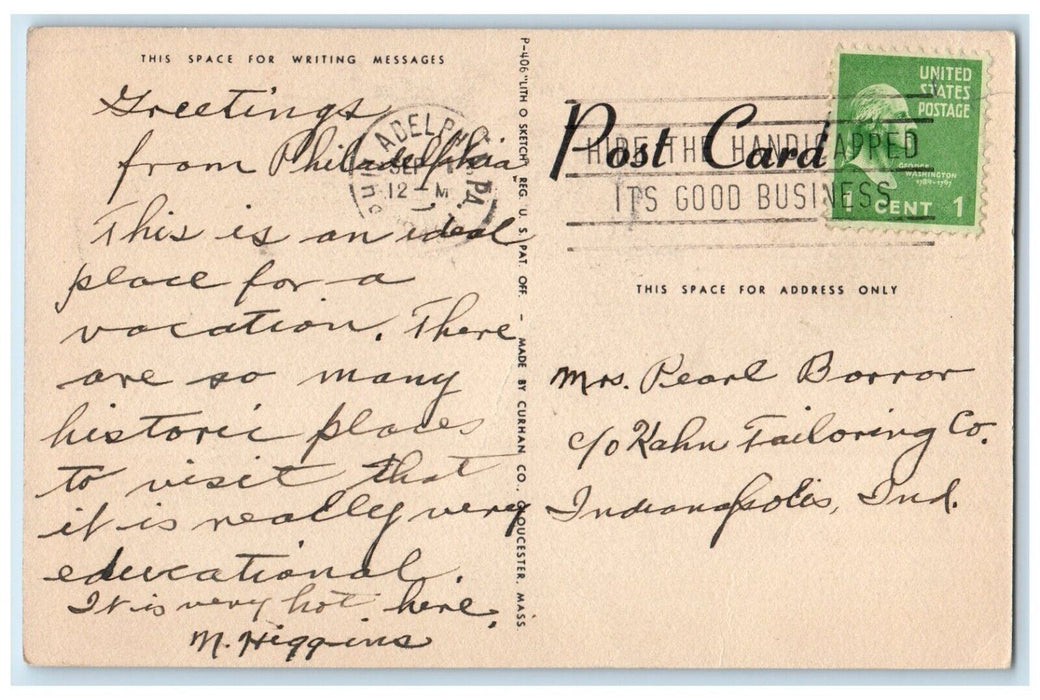 THIS SPACE FOR WRITING MESSAGES
Greetings
from Philadelphia
This is an ideal
place for a
vacation. There
are so many
historic places
to visit that
it is really very
educational.
It is very hot here.
M. Higgins
PHILADELPHIA PA.
SEP
12 M
P-406 "LITH O SKETCH" REG. U. S. PAT. OFF. - MADE BY CURHAN CO., GLOUCESTER, MASS.
Post Card
HIRE THE HANDICAPPED
ITS GOOD BUSINESS
UNITED
STATES
POSTAGE
GEORGE
WASHINGTON
1789-1797
1 CENT 1
THIS SPACE FOR ADDRESS ONLY
Mrs. Pearl Borror
c/o Kahn Tailoring Co.
Indianapolis, Ind.